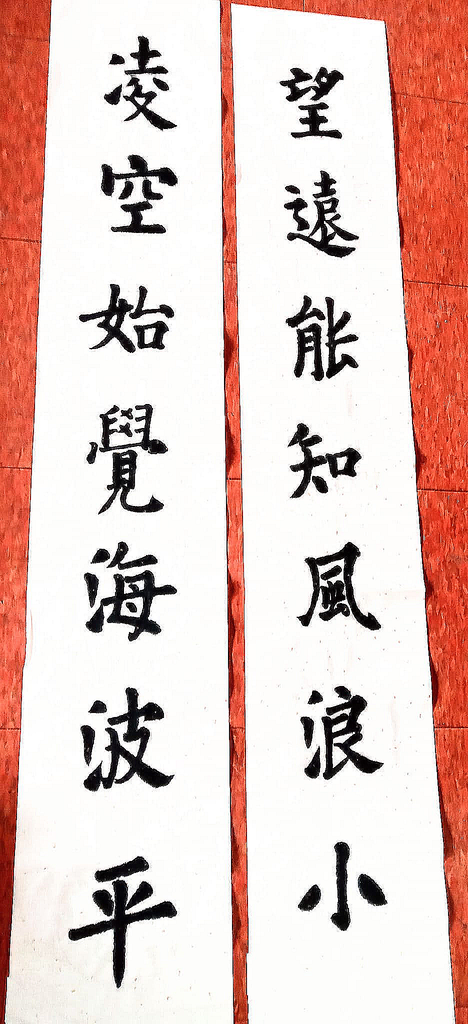 望遠能知風浪小
凌空始覺海波平